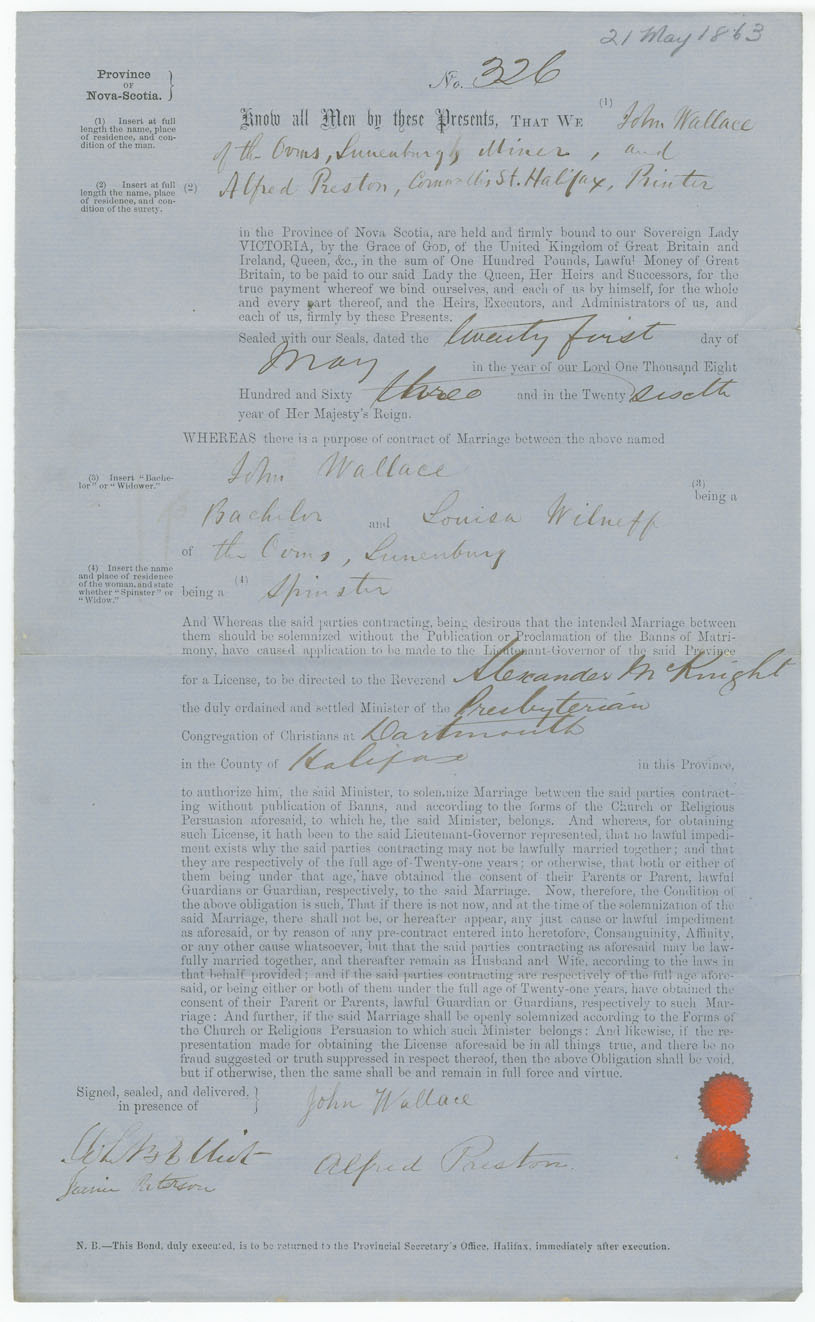 21 May 1863
Province
OF
Nova-Scotia.
No. 326
(1) Insert at full
length the name, place
of residence, and con-
dition of the man.
Know all Men by these Presents, THAT WE (1) John Wallace
of the Ovens, Lunenburg Miner, and
(2) Insert at full
length the name, place
of residence, and con-
dition of the surety.
(2) Alfred Preston, Cornwallis St. Halifax, Printer
in the Province of Nova Scotia, are held and firmly bound to our Sovereign Lady
VICTORIA, by the Grace of GOD, of the United Kingdom of Great Britain and
Ireland, Queen, &c., in the sum of One Hundred Pounds, Lawful Money of Great
Britain, to be paid to our said Lady the Queen, Her Heirs and Successors, for the
true payment whereof we bind ourselves, and each of us by himself, for the whole
and every part thereof, and the Heirs, Executors, and Administrators of us, and
each of us, firmly by these Presents.
Sealed with our Seals, dated the twenty first day of
May in the year of our Lord One Thousand Eight
Hundred and Sixty three and in the Twenty sixth
year of Her Majesty's Reign.
WHEREAS there is a purpose of contract of Marriage between the above named
(3) Insert "Bache-
lor" or "Widower."
John Wallace (3) being a
Bachelor and Louisa Wilneff
of the Ovens, Lunenburg
(4) Insert the name
and place of residence
of the woman, and state
whether "Spinster" or
"Widow."
being a (4) Spinster
And Whereas the said parties contracting, being desirous that the intended Marriage between
them should be solemnized without the Publication or Proclamation of the Banns of Matri-
mony, have caused application to be made to the Lieutenant-Governor of the said Province
for a License, to be directed to the Reverend Alexander McKnight
the duly ordained and settled Minister of the Presbyterian
Congregation of Christians at Dartmouth
in the County of Halifax in this Province,
to authorize him, the said Minister, to solemnize Marriage between the said parties contract-
ing without publication of Banns, and according to the forms of the Church or Religious
Persuasion aforesaid, to which he, the said Minister, belongs. And whereas, for obtaining
such License, it hath been to the said Lieutenant-Governor represented, that no lawful impedi-
ment exists why the said parties contracting may not be lawfully married together; and that
they are respectively of the full age of Twenty-one years; or otherwise, that both or either of
them being under that age, have obtained the consent of their Parents or Parent, lawful
Guardians or Guardian, respectively, to the said Marriage. Now, therefore, the Condition of
the above obligation is such, That if there is not now, and at the time of the solemnization of the
said Marriage, there shall not be, or hereafter appear, any just cause or lawful impediment
as aforesaid, or by reason of any pre-contract entered into heretofore, Consanguinity, Affinity,
or any other cause whatsoever, but that the said parties contracting as aforesaid may be law-
fully married together, and thereafter remain as Husband and Wife, according to the laws in
that behalf provided; and if the said parties contracting are respectively of the full age afore-
said, or being either or both of them under the full age of Twenty-one years, have obtained the
consent of their Parent or Parents, lawful Guardian or Guardians, respectively to such Mar-
riage: And further, if the said Marriage shall be openly solemnized according to the Forms of
the Church or Religious Persuasion to which such Minister belongs: And likewise, if the re-
presentation made for obtaining the License aforesaid be in all things true, and there be no
fraud suggested or truth suppressed in respect thereof, then the above Obligation shall be void,
but if otherwise, then the same shall be and remain in full force and virtue.
Signed, sealed, and delivered,
in presence of
John Wallace
Alfred Preston.
Peterson
N. B.—This Bond, duly executed, is to be returned to the Provincial Secretary's Office, Halifax, immediately after execution.